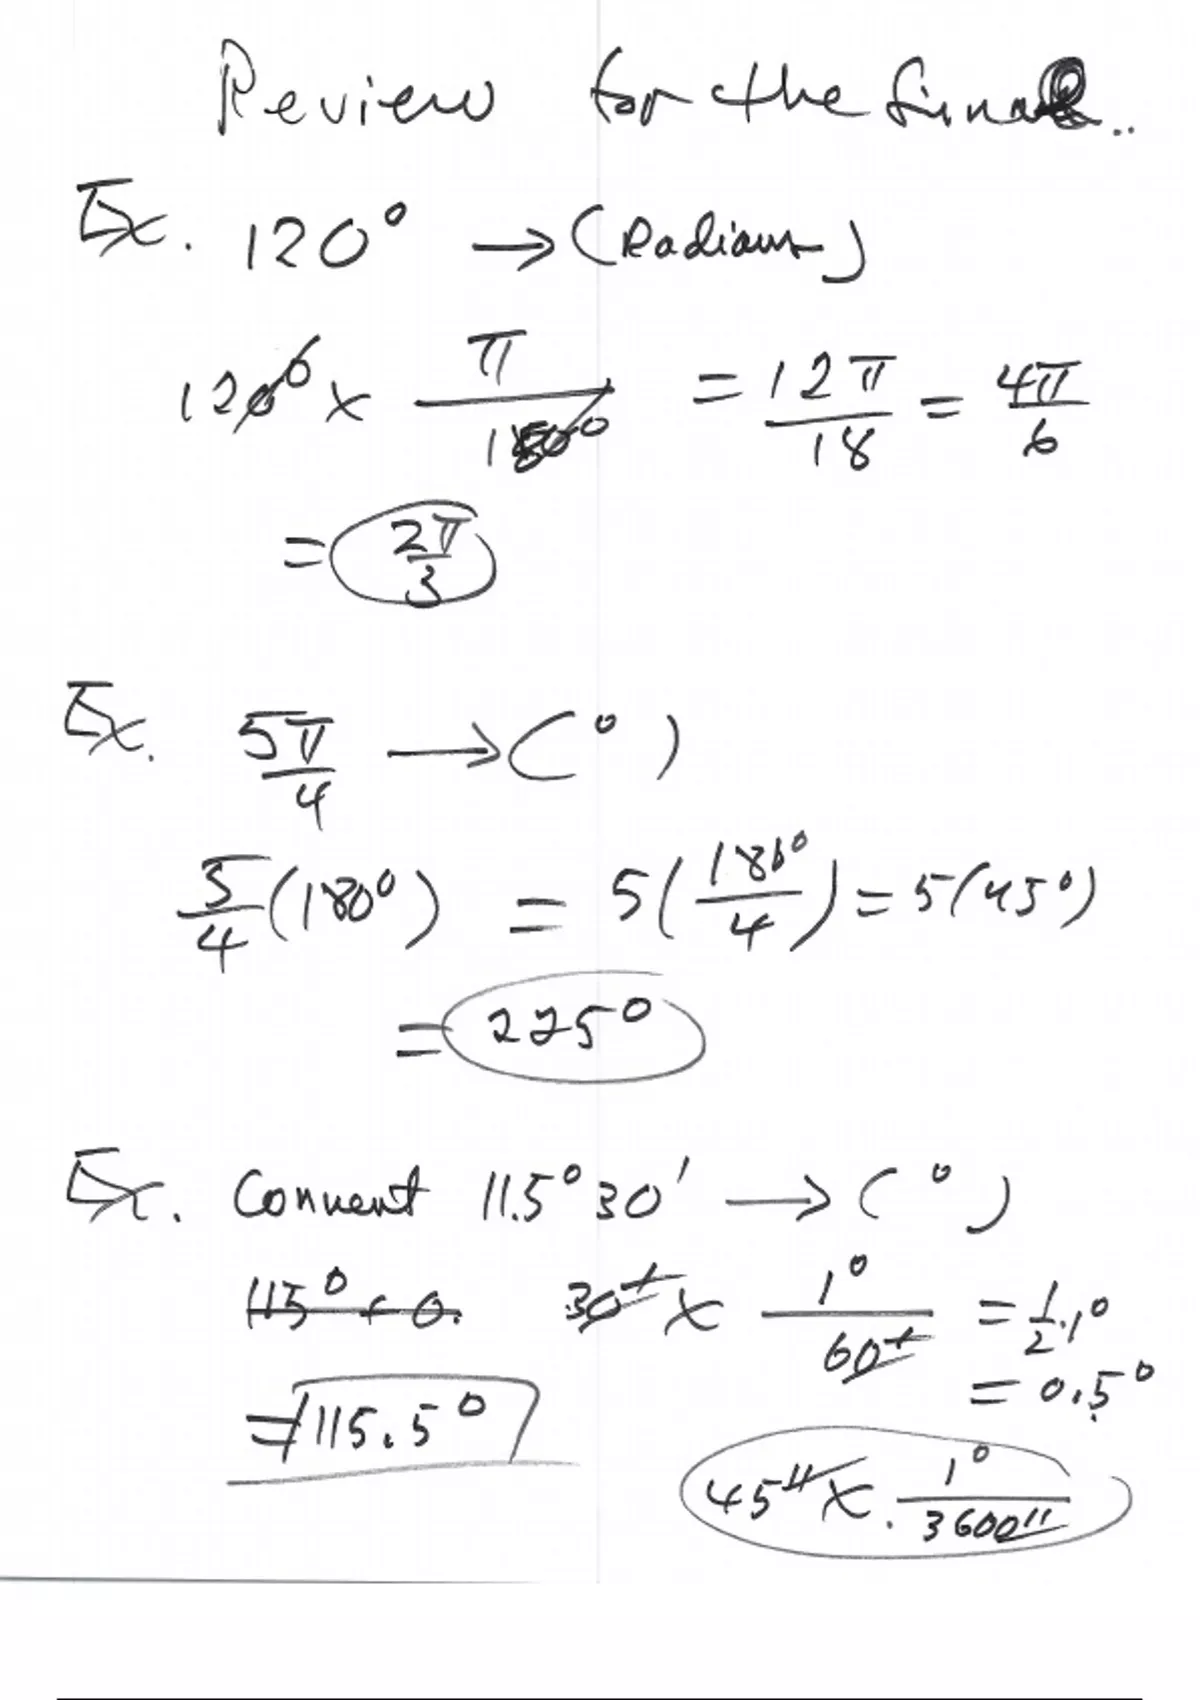 Review for the final..
Ex. 120° → (Radians)
120° × π/180° = 12π/18 = 4π/6
= 2π/3
Ex. 5π/4 → ( ° )
5/4 (180°) = 5(180°/4) = 5(45°)
= 225°
Ex. Convert 115° 30' → ( ° )
115° + 0. 30' × 1°/60' = 1/2 · 1°
= 0.5°
= 115.5°
45'' × . 1°/3600''